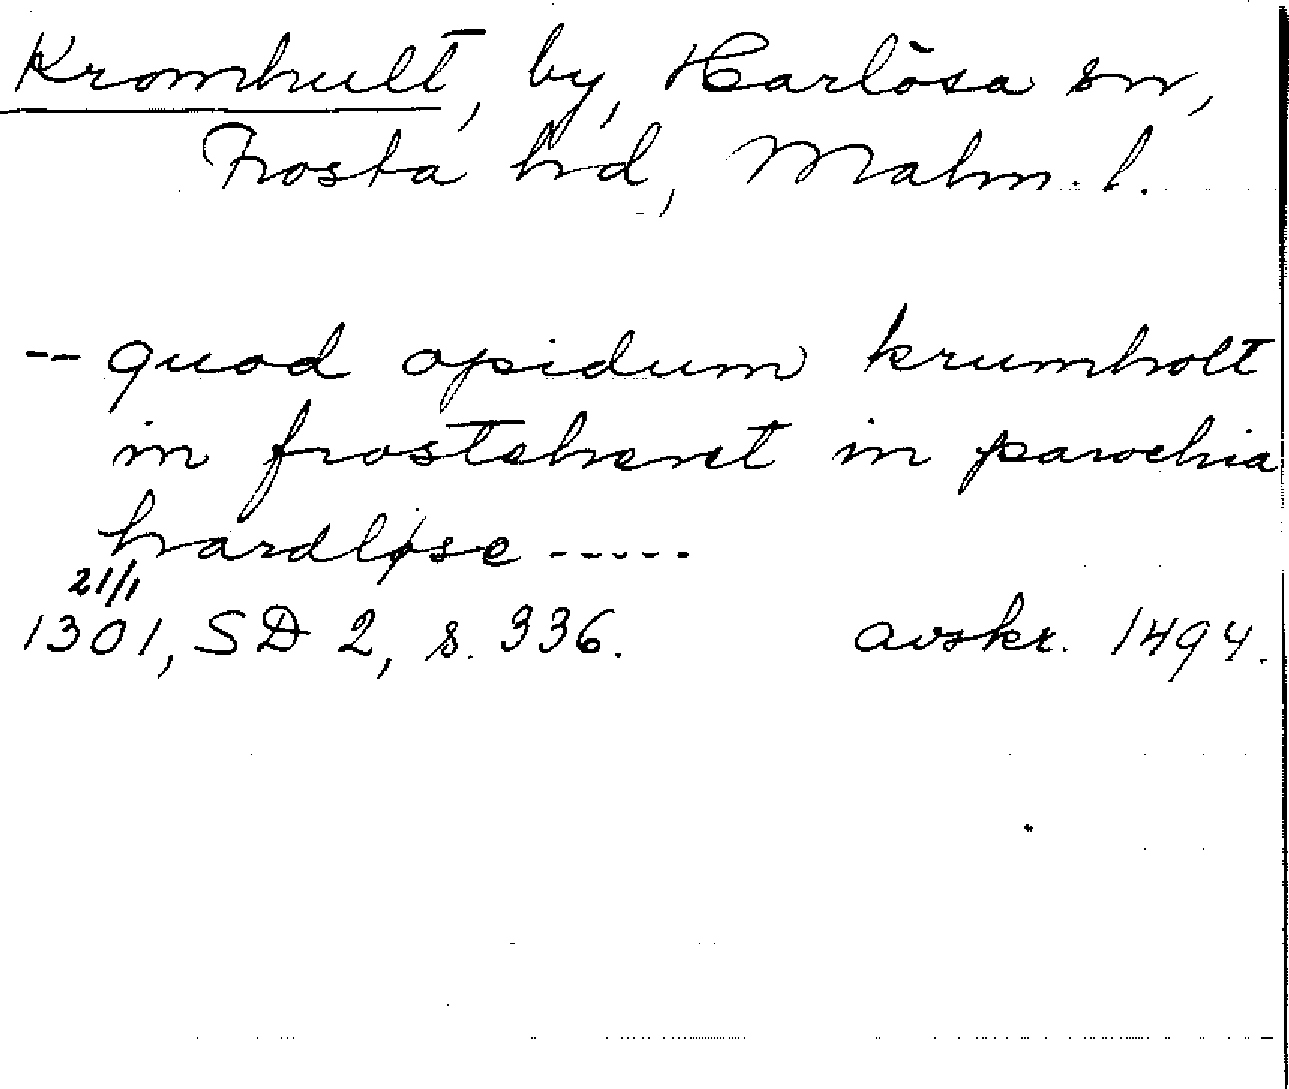 Kromhult, by, Harlösa sn,
Frosta hd, Malm. l.
-- quod opidum krumholt
in frosteheret in parochia
hardløse -----
21/1
1301, SD 2, s. 336. avskr. 1494.